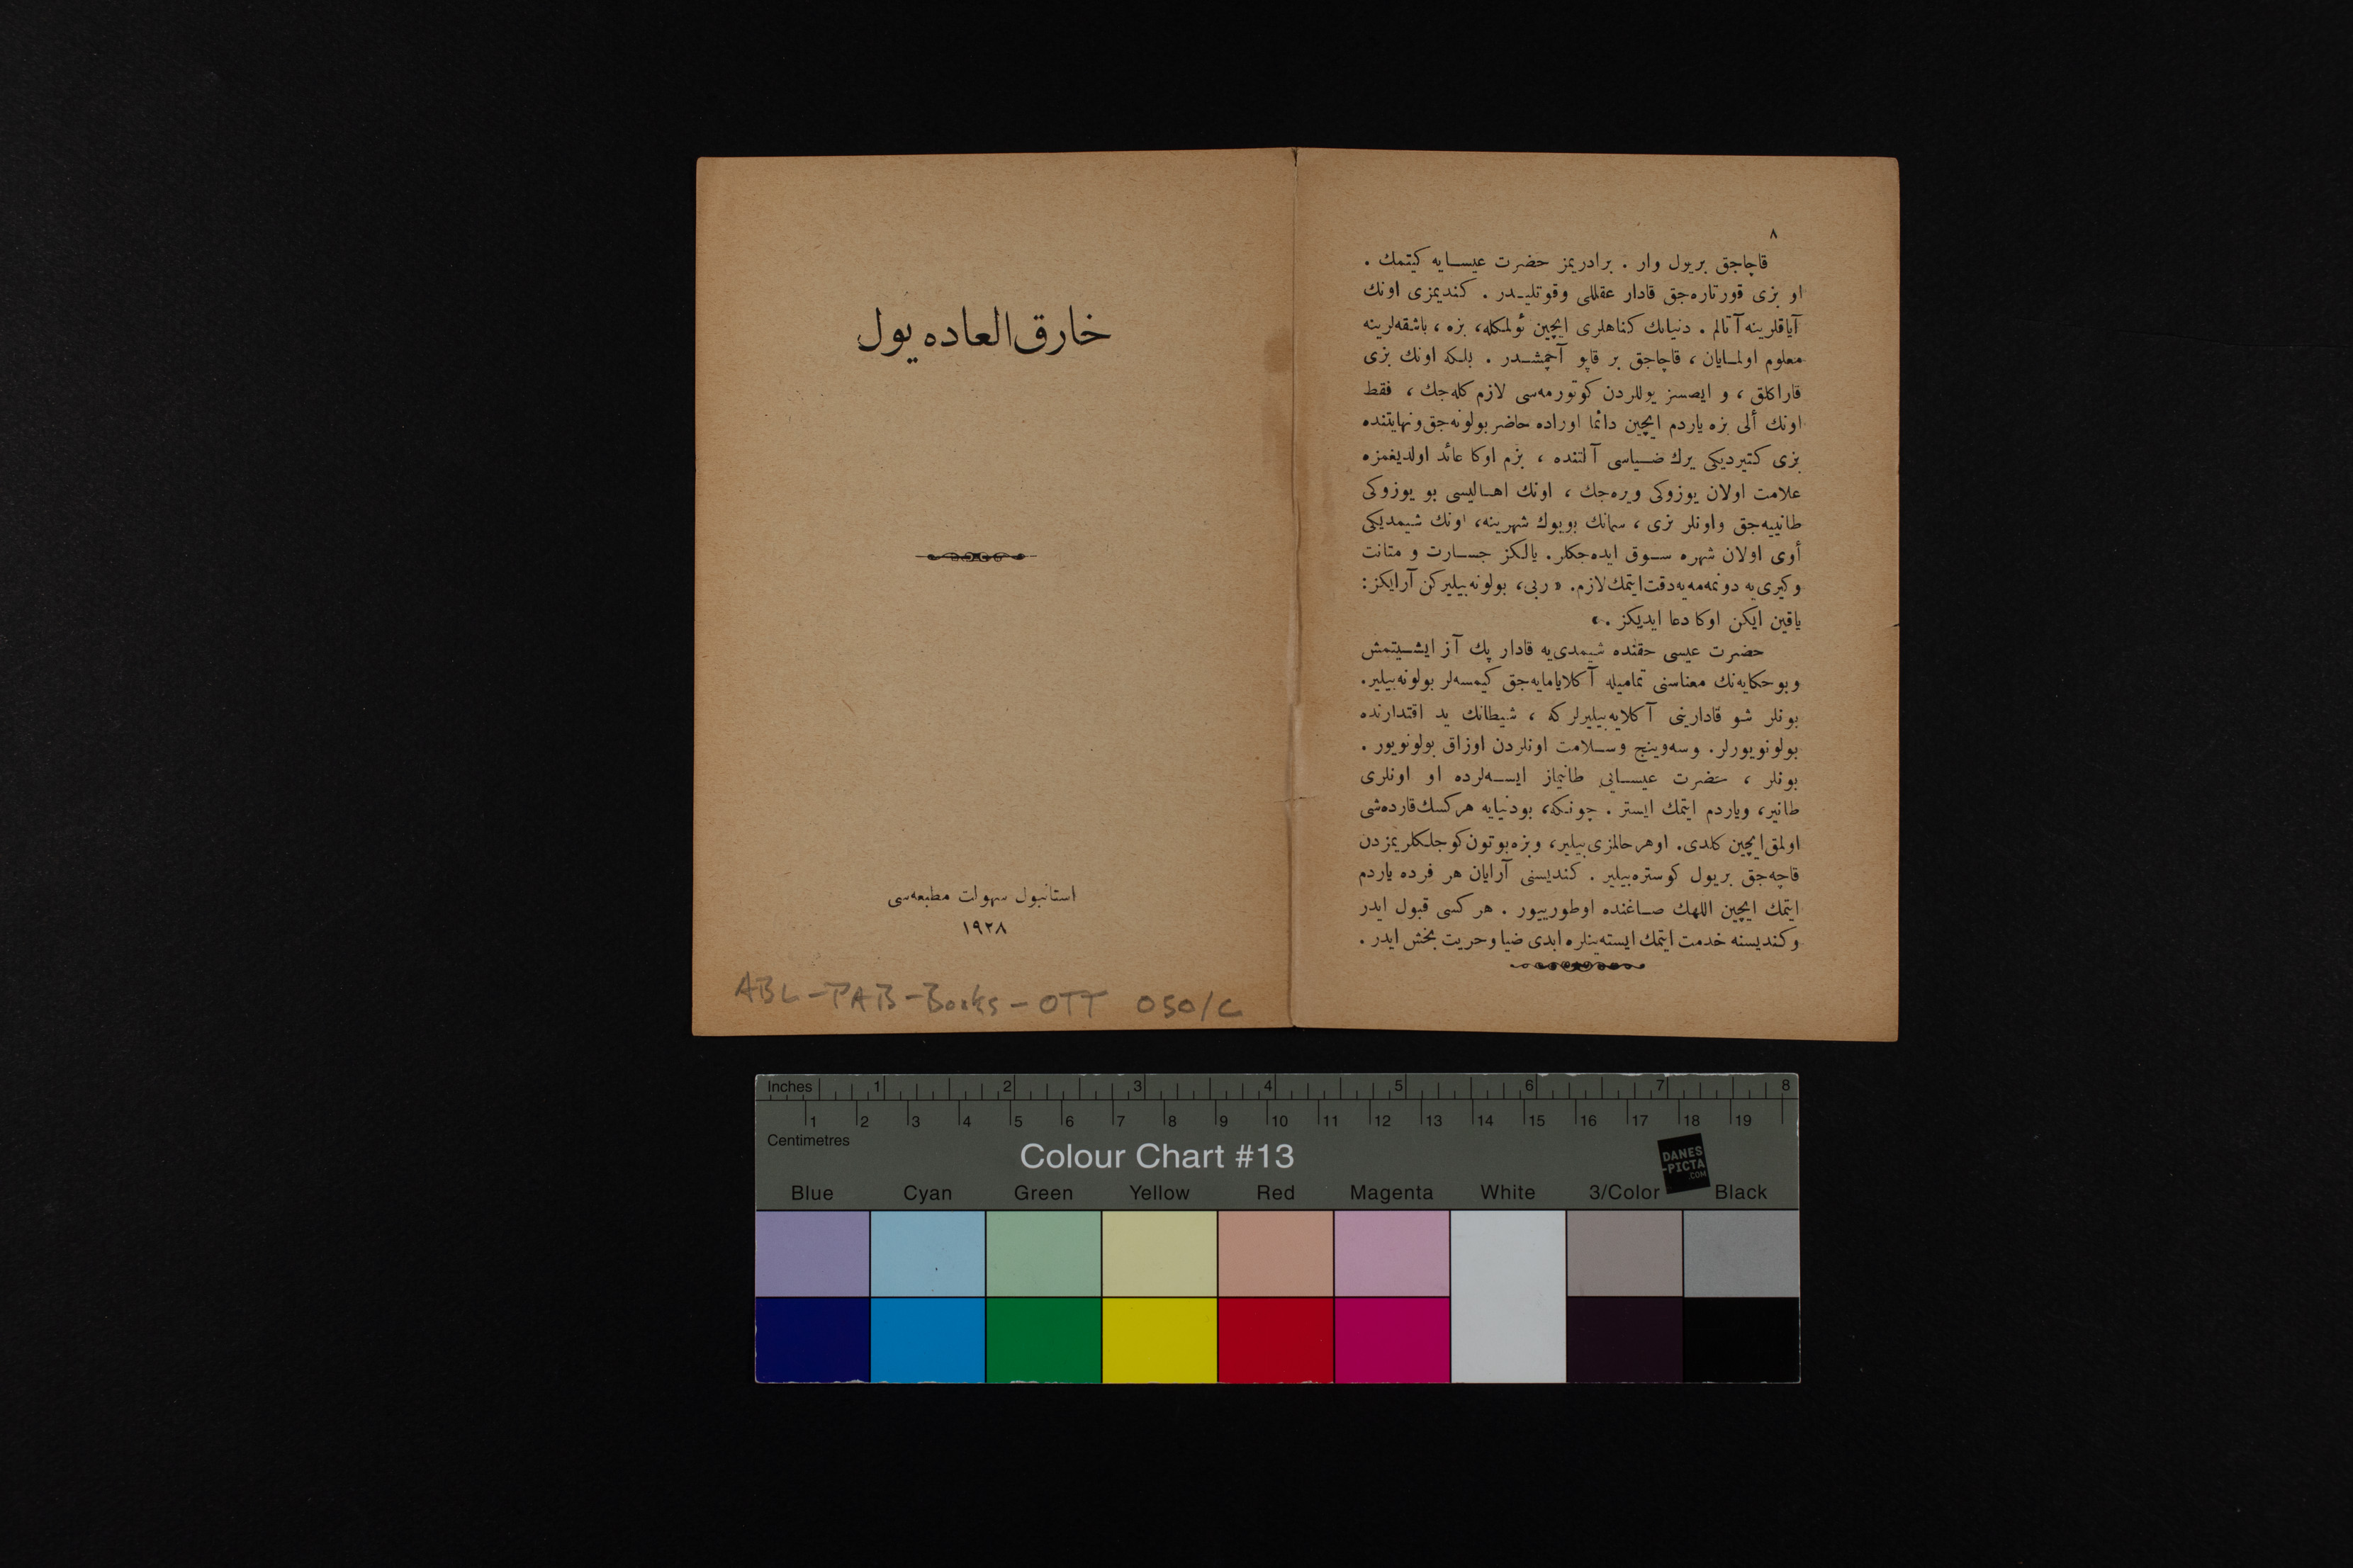 خارق العاده یول
استانبول سهولت مطبعه‌سی
١٩٢٨
ABL-PAB-Books-OTT 050/C
٨
قاچاجق بریول وار . برادریمز حضرت عیسایه کیتمك .
او بزی قورتاره‌جق قادار عقللی وقوتلیدر . کندیمزی اونك
آیاقلرینه آتالم . دنیانك کناهلری ایچین ئولمکله، بزه ، باشقه‌لرینه
معلوم اولمایان ، قاچاجق بر قاپو آچمشدر . بلکه اونك بزی
قاراکلق ، و ایصسز یوللردن کوتورمه‌سی لازم کله‌جك ، فقط
اونك ألی بزه یاردم ایچین دائما اوراده حاضر بولونه‌جق ونهایتنده
بزی کتیردیکی یرك ضیاسی آلتنده ، بزم اوکا عائد اولدیغمزه
علامت اولان یوزوکی ویره‌جك ، اونك اهالیسی بو یوزوکی
طانییه‌جق واونلر بزی ، سمانك بویوك شهرینه، اونك شیمدیکی
أوی اولان شهره سوق ایده‌جکلر. یالکز جسارت و متانت
وکیری‌یه دونمه‌مه‌یه دقت ایتمك لازم. « ربی، بولونه‌بیلیرکن آرایکز:
یاقین ایکن اوکا دعا ایدیکز . »
حضرت عیسی حقنده شیمدی‌یه قادار پك آز ایشیتمش
وبوحکایه‌نك معناسنی تمامیله آکلایامایه‌جق کیمسه‌لر بولونه‌بیلیر.
بونلر شو قادارینی آکلایه‌بیلیرلرکه ، شیطانك ید اقتدارنده
بولونویورلر. وسه‌وینج وسلامت اونلردن اوزاق بولونویور .
بونلر ، حضرت عیسایی طانیماز ایسه‌لرده او اونلری
طانیر، ویاردم ایتمك ایستر . چونکه، بودنیایه هرکسك قارده‌شی
اولمق ایچین کلدی. اوهرحالمزی بیلیر، وبزه بوتون کوجلکلریمزدن
قاچه‌جق بریول کوستره‌بیلیر . کندیسنی آرایان هر فرده یاردم
ایتمك ایچین اللهك صاغنده اوطورییور . هرکسی قبول ایدر
وکندیسنه خدمت ایتمك ایسته‌ینلره ابدی ضیا وحریت بخش ایدر .
Inches 1 2 3 4 5 6 7 8
1 2 3 4 5 6 7 8 9 10 11 12 13 14 15 16 17 18 19
Centimetres
Colour Chart #13
DANES
-PICTA
.COM
Blue Cyan Green Yellow Red Magenta White 3/Color Black